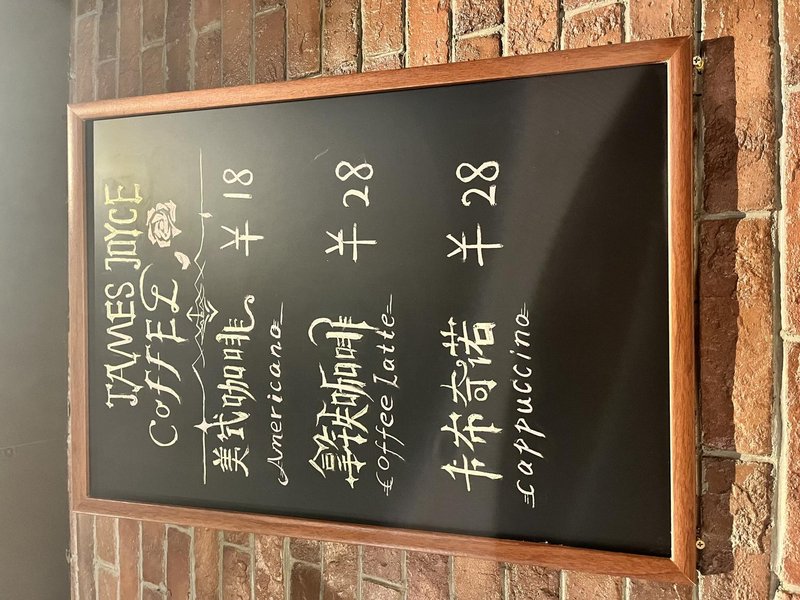 JAMES JOYCE
COFFEE
美式咖啡 ¥18
Americano
拿铁咖啡 ¥28
Coffee Latte
卡布奇诺 ¥28
cappuccino